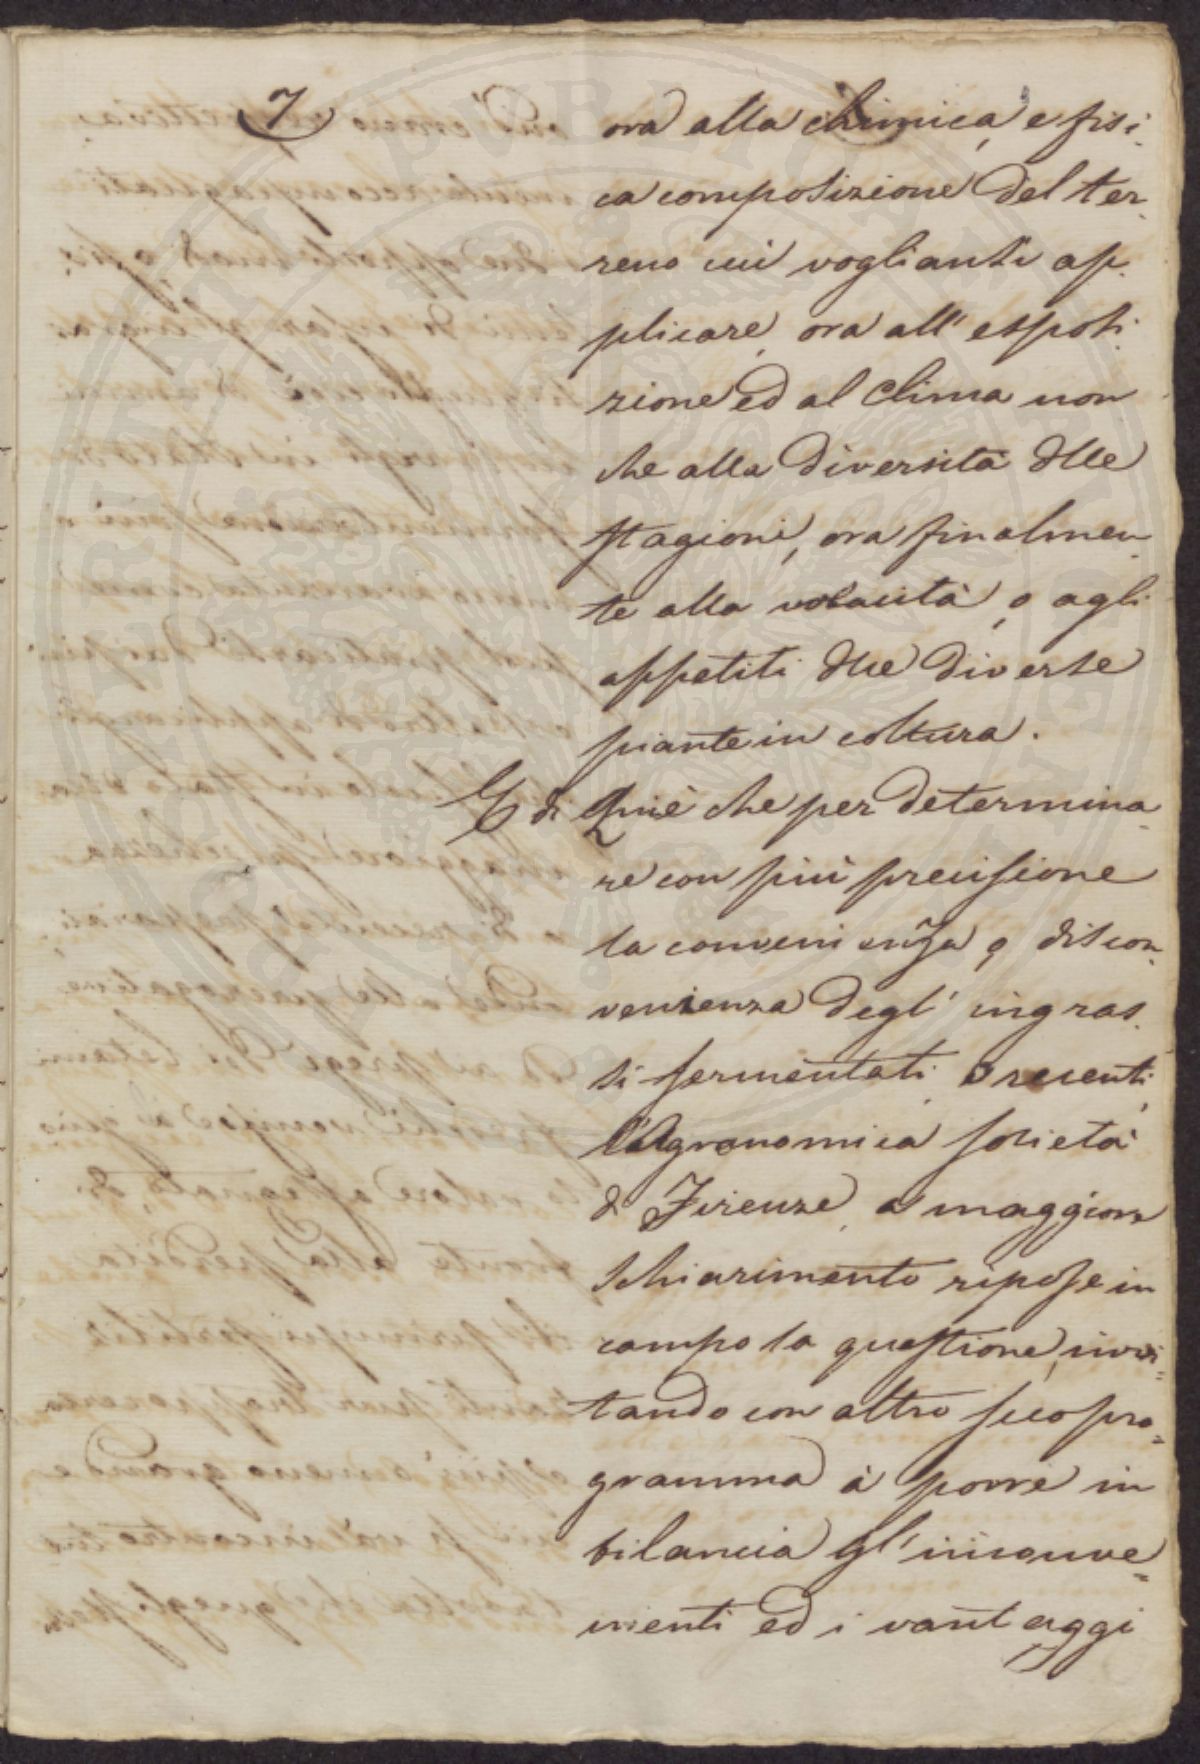 7
ora alla chimica, e fisi.
ca composizione del ter.
reno cui vogliansi ap.
plicare, ora all' esposi.
zione ed al Clima non
che alla diversità dlle
stagioni, ora finalmen.
te alla voracità, o agli
appetiti dlle diverse
piante in coltura.
E di Quì è che per determina.
re con più precisione
la convenienza, o discon.
venienza degl' ingras.
si fermentati, o recenti,
l'Agronomica società
di Firenze, a maggiore
schiarimento ripose in
campo la questione, invi=
tando con altro suo pro=
gramma à porre in
bilancia gl' inconve=
nienti ed i vantaggi